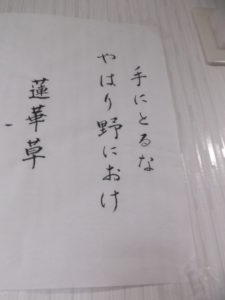 手にとるな
やはり野におけ
蓮華草